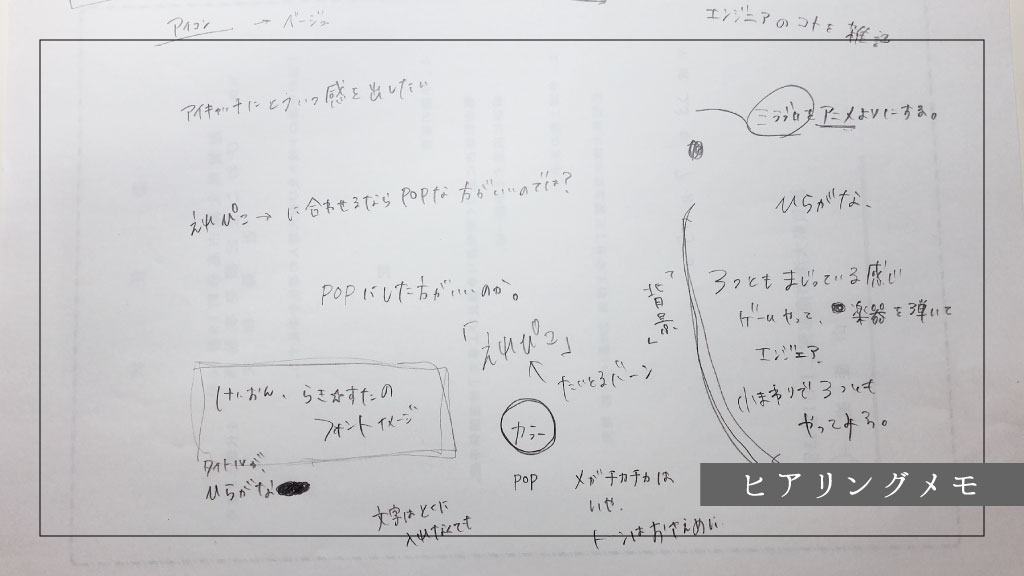 アイコン → ベージュ
エンジニアのコトを 雑記
アイキャッチにどういう感を出したい
ミラブロをアニメよりにする。
えれぴこ → に合わせるならPOPな方がいいのでは?
ひらがな、
POPにした方がいいのか。
「背景」
3つともまじっている感じ
ゲームやって、楽器を弾いて
エンジニア
小まわりで3つとも
やってみる。
「えれぴこ」
たいとるバーン
けいおん、らき☆すたの
フォントイメージ
タイトルが、
ひらがな
カラー
POP
メがチカチカは
いや、
トーンはおさえめに
文字はとくに
入れなくても
ヒアリングメモ